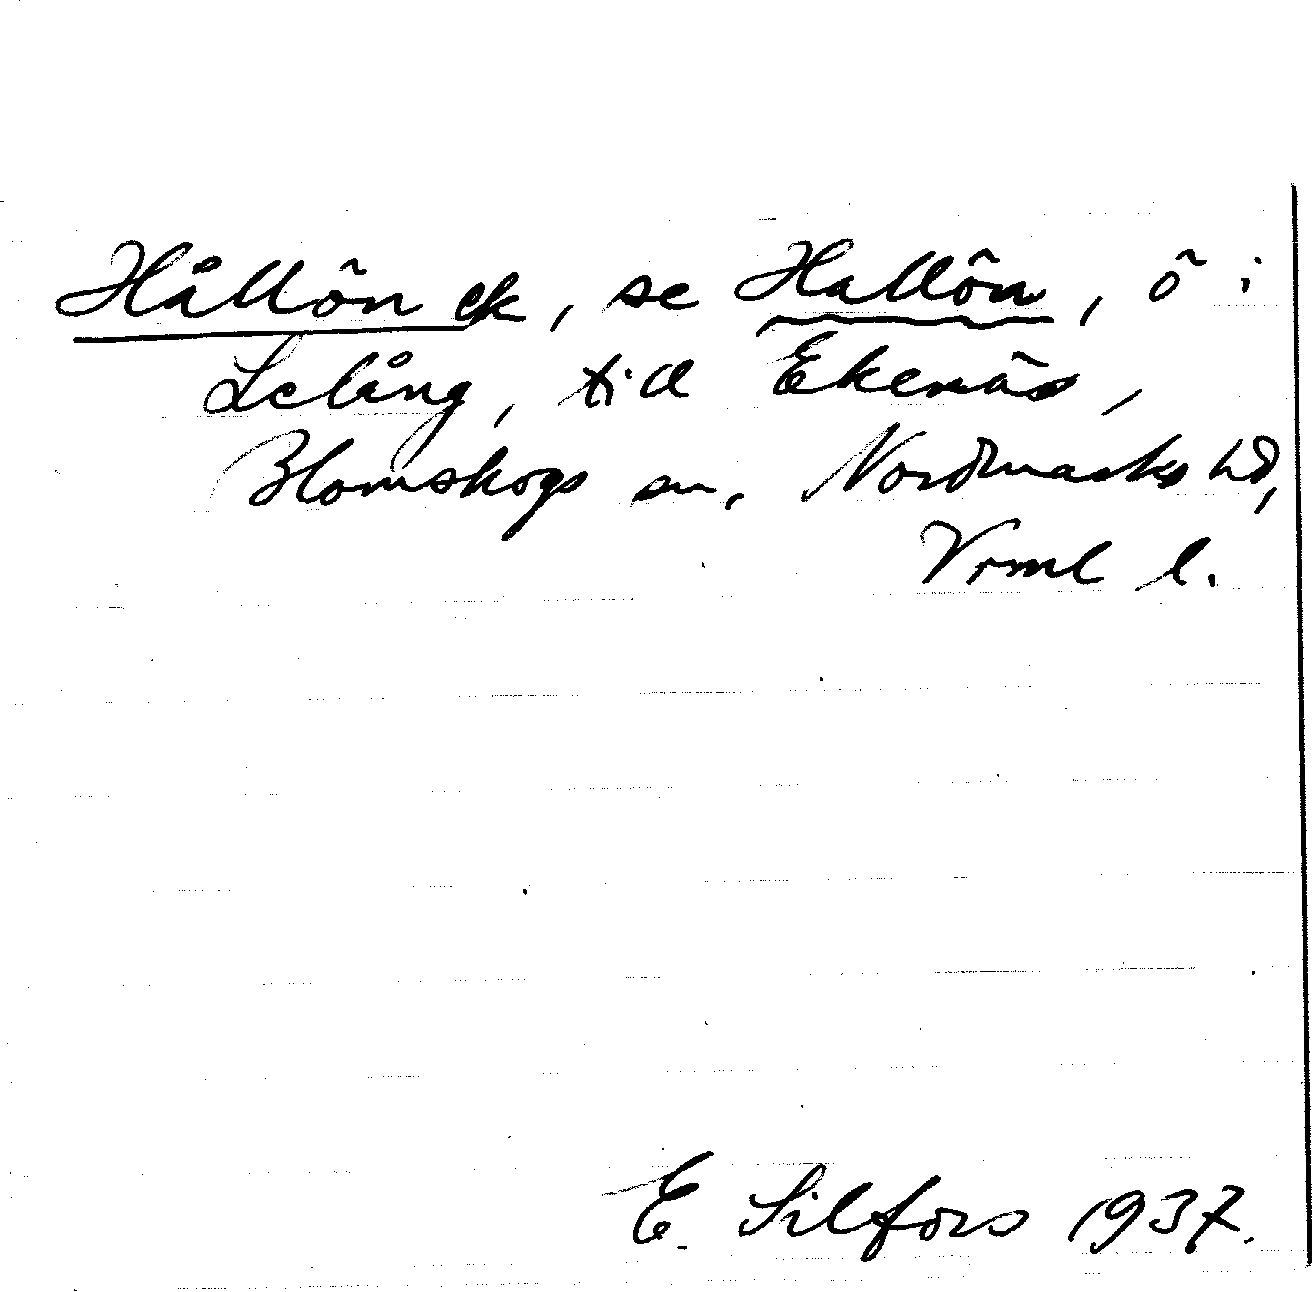 Hållön ek, se Hallön, ö i
Lelång, till Ekenäs,
Blomskogs sn, Nordmarks hd,
Vrml l.
E. Silfors 1937.